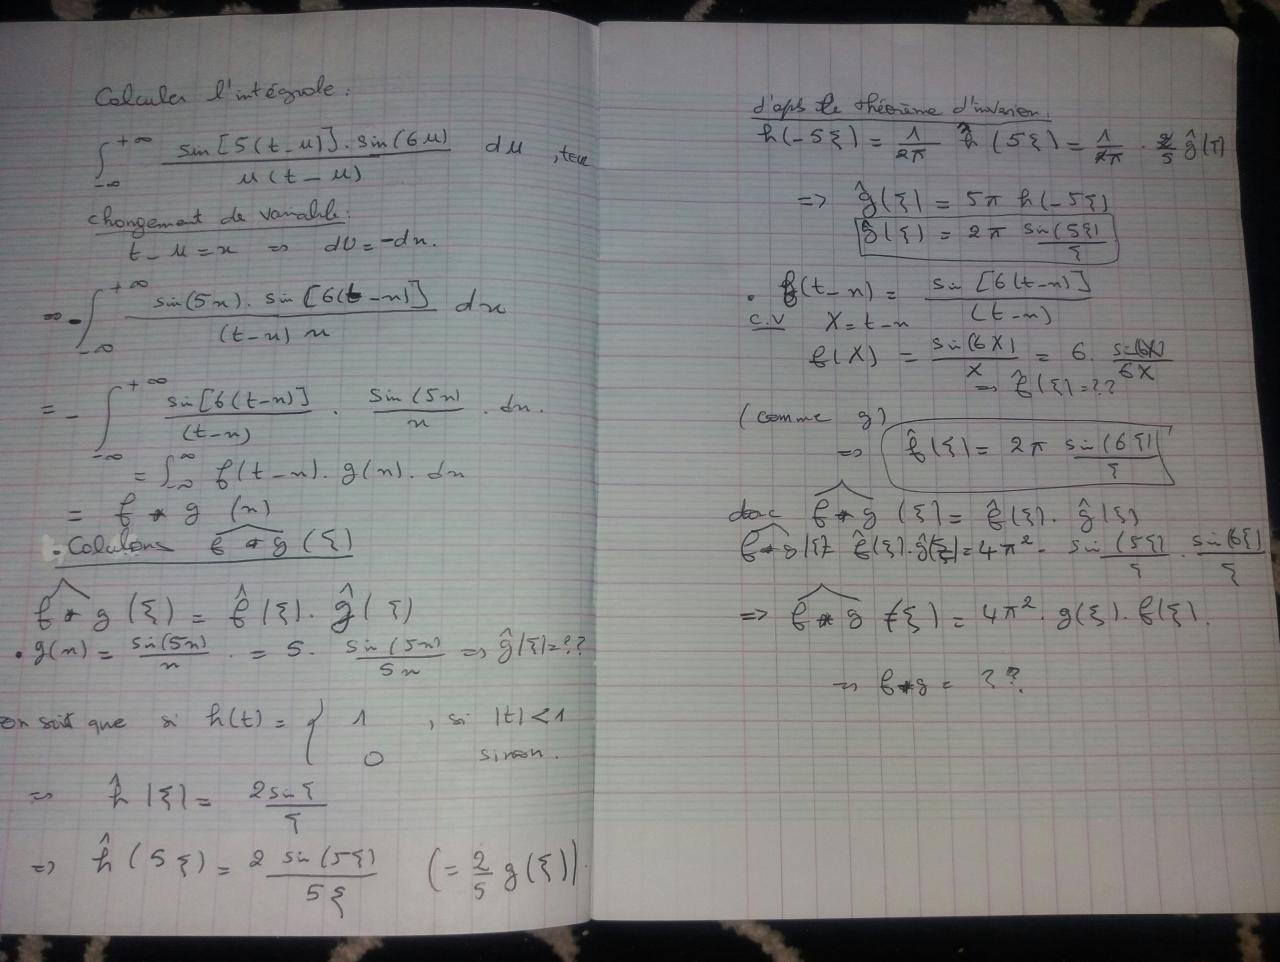 Calculer l'intégrale :
∫_{-∞}^{+∞} sin[5(t-u)].sin(6u) / u(t-u) du , t∈ℝ
changement de variable :
t-u=x => dU=-dx.
∞-∫_{-∞}^{+∞} sin(5x). sin[6(t-x)] / (t-x) x dx
= - ∫_{-∞}^{+∞} sin[6(t-x)] / (t-x) . sin(5x) / x . dx.
= ∫_{-∞}^{∞} f(t-x). g(x). dx
= f * g (x)
. Calculons \widehat{f*g} (ξ)
\widehat{f*g} (ξ) = f̂(ξ). ĝ(ξ)
• g(x) = sin(5x) / x . = 5. sin(5x) / 5x => ĝ(ξ)=??
on sait que si h(t) = { 1 , si |t|<1
0 sinon.
=> ĥ(ξ) = 2 sin ξ / ξ
=> ĥ(5ξ) = 2 sin(5ξ) / 5ξ (= 2/5 g(ξ)).
d'aps le théorème d'inversion.
h(-5ξ) = 1/2π ĥ̂(5ξ) = 1/2π . 2/5 ĝ(T)
=> ĝ(ξ) = 5π h(-5ξ)
ĝ(ξ) = 2π sin(5ξ) / ξ
. f(t-x) = sin[6(t-x)] / (t-x)
c.v X = t-x
f(X) = sin(6X) / X = 6. sin(6X) / 6X
=> f̂(ξ)=??
(comme g)
=> f̂(ξ) = 2π sin(6ξ) / ξ
donc \widehat{f*g} (ξ) = f̂(ξ). ĝ(ξ)
\widehat{f*g}(ξ) = f̂(ξ).ĝ(ξ) = 4π². sin(5ξ) / ξ . sin(6ξ) / ξ
=> \widehat{f*g} (ξ) = 4π². g(ξ). f(ξ).
=> f*g = ??.